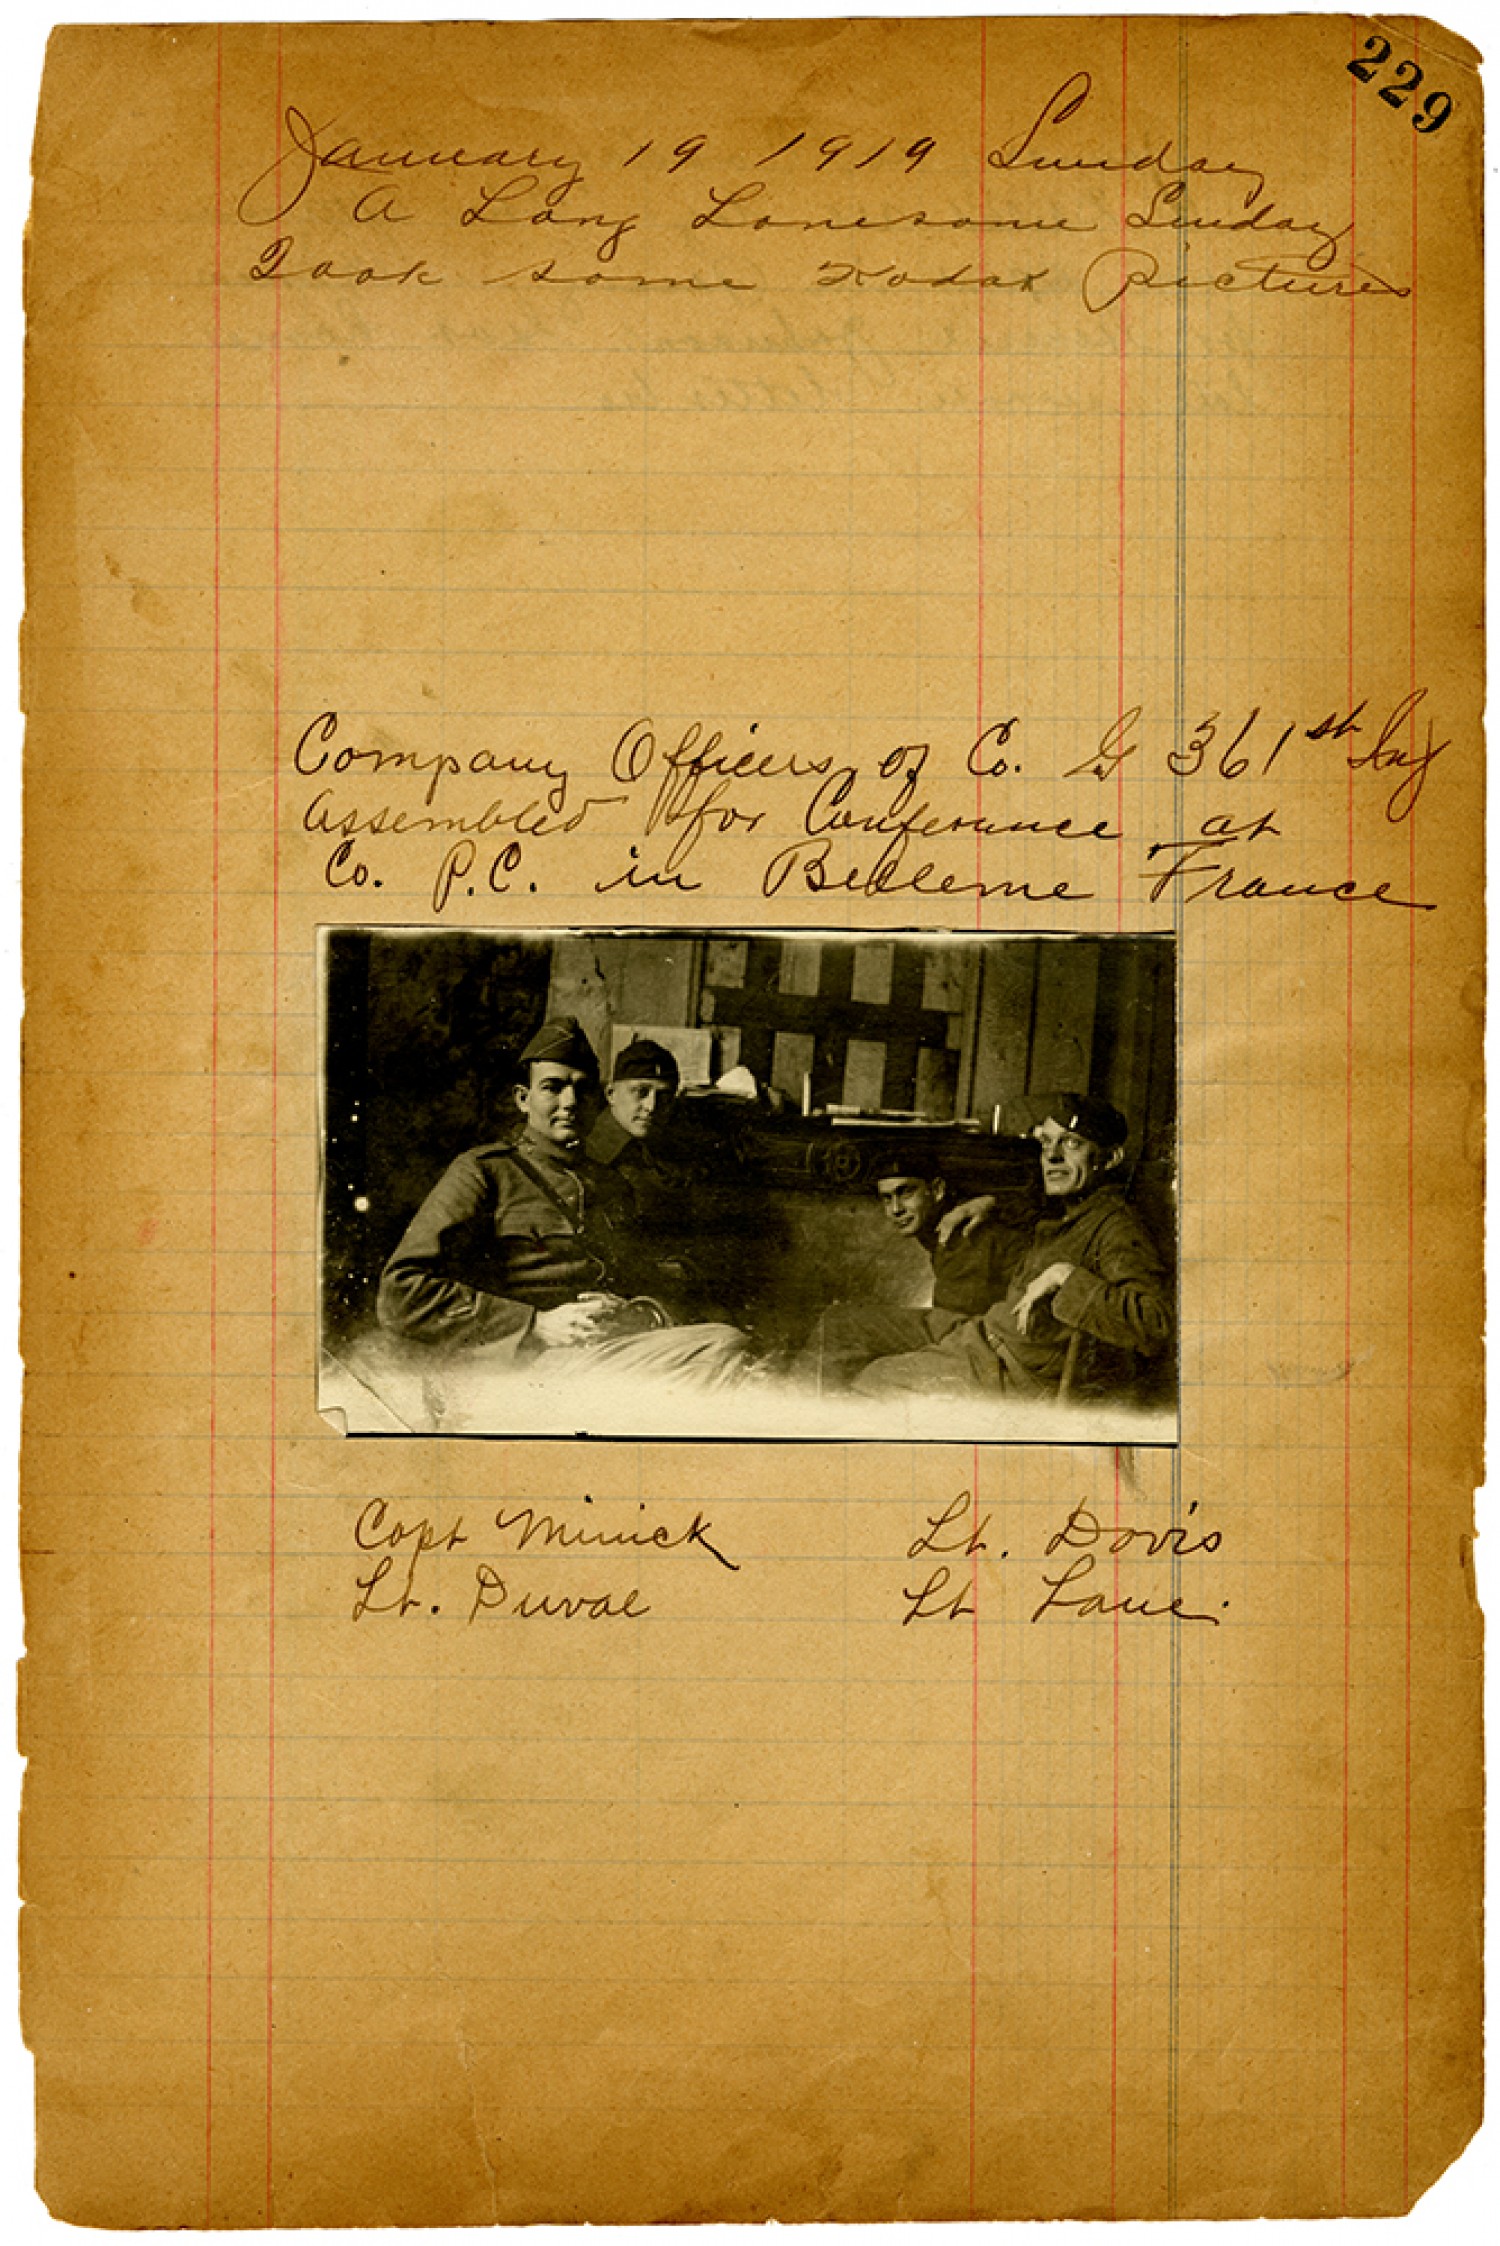 229
January 19 1919 Sunday
A Long Lonesome Sunday
Took some Kodak Pictures
Company Officers of Co. G 361st Inf
Assembled for Conference at
Co. P.C. in Belleme France
Capt Minick
Lt. Duval
Lt. Davis
Lt Lane.